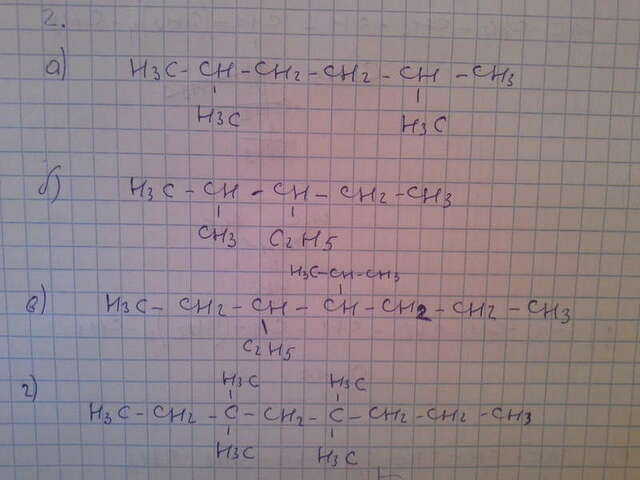 2.
а) H3C - CH - CH2 - CH2 - CH - CH3
H3C H3C
б) H3C - CH - CH - CH2 - CH3
CH3 C2H5
H3C-CH-CH3
в) H3C - CH2 - CH - CH - CH2 - CH2 - CH3
C2H5
H3C H3C
г) H3C - CH2 - C - CH2 - C - CH2 - CH2 - CH3
H3C H3C